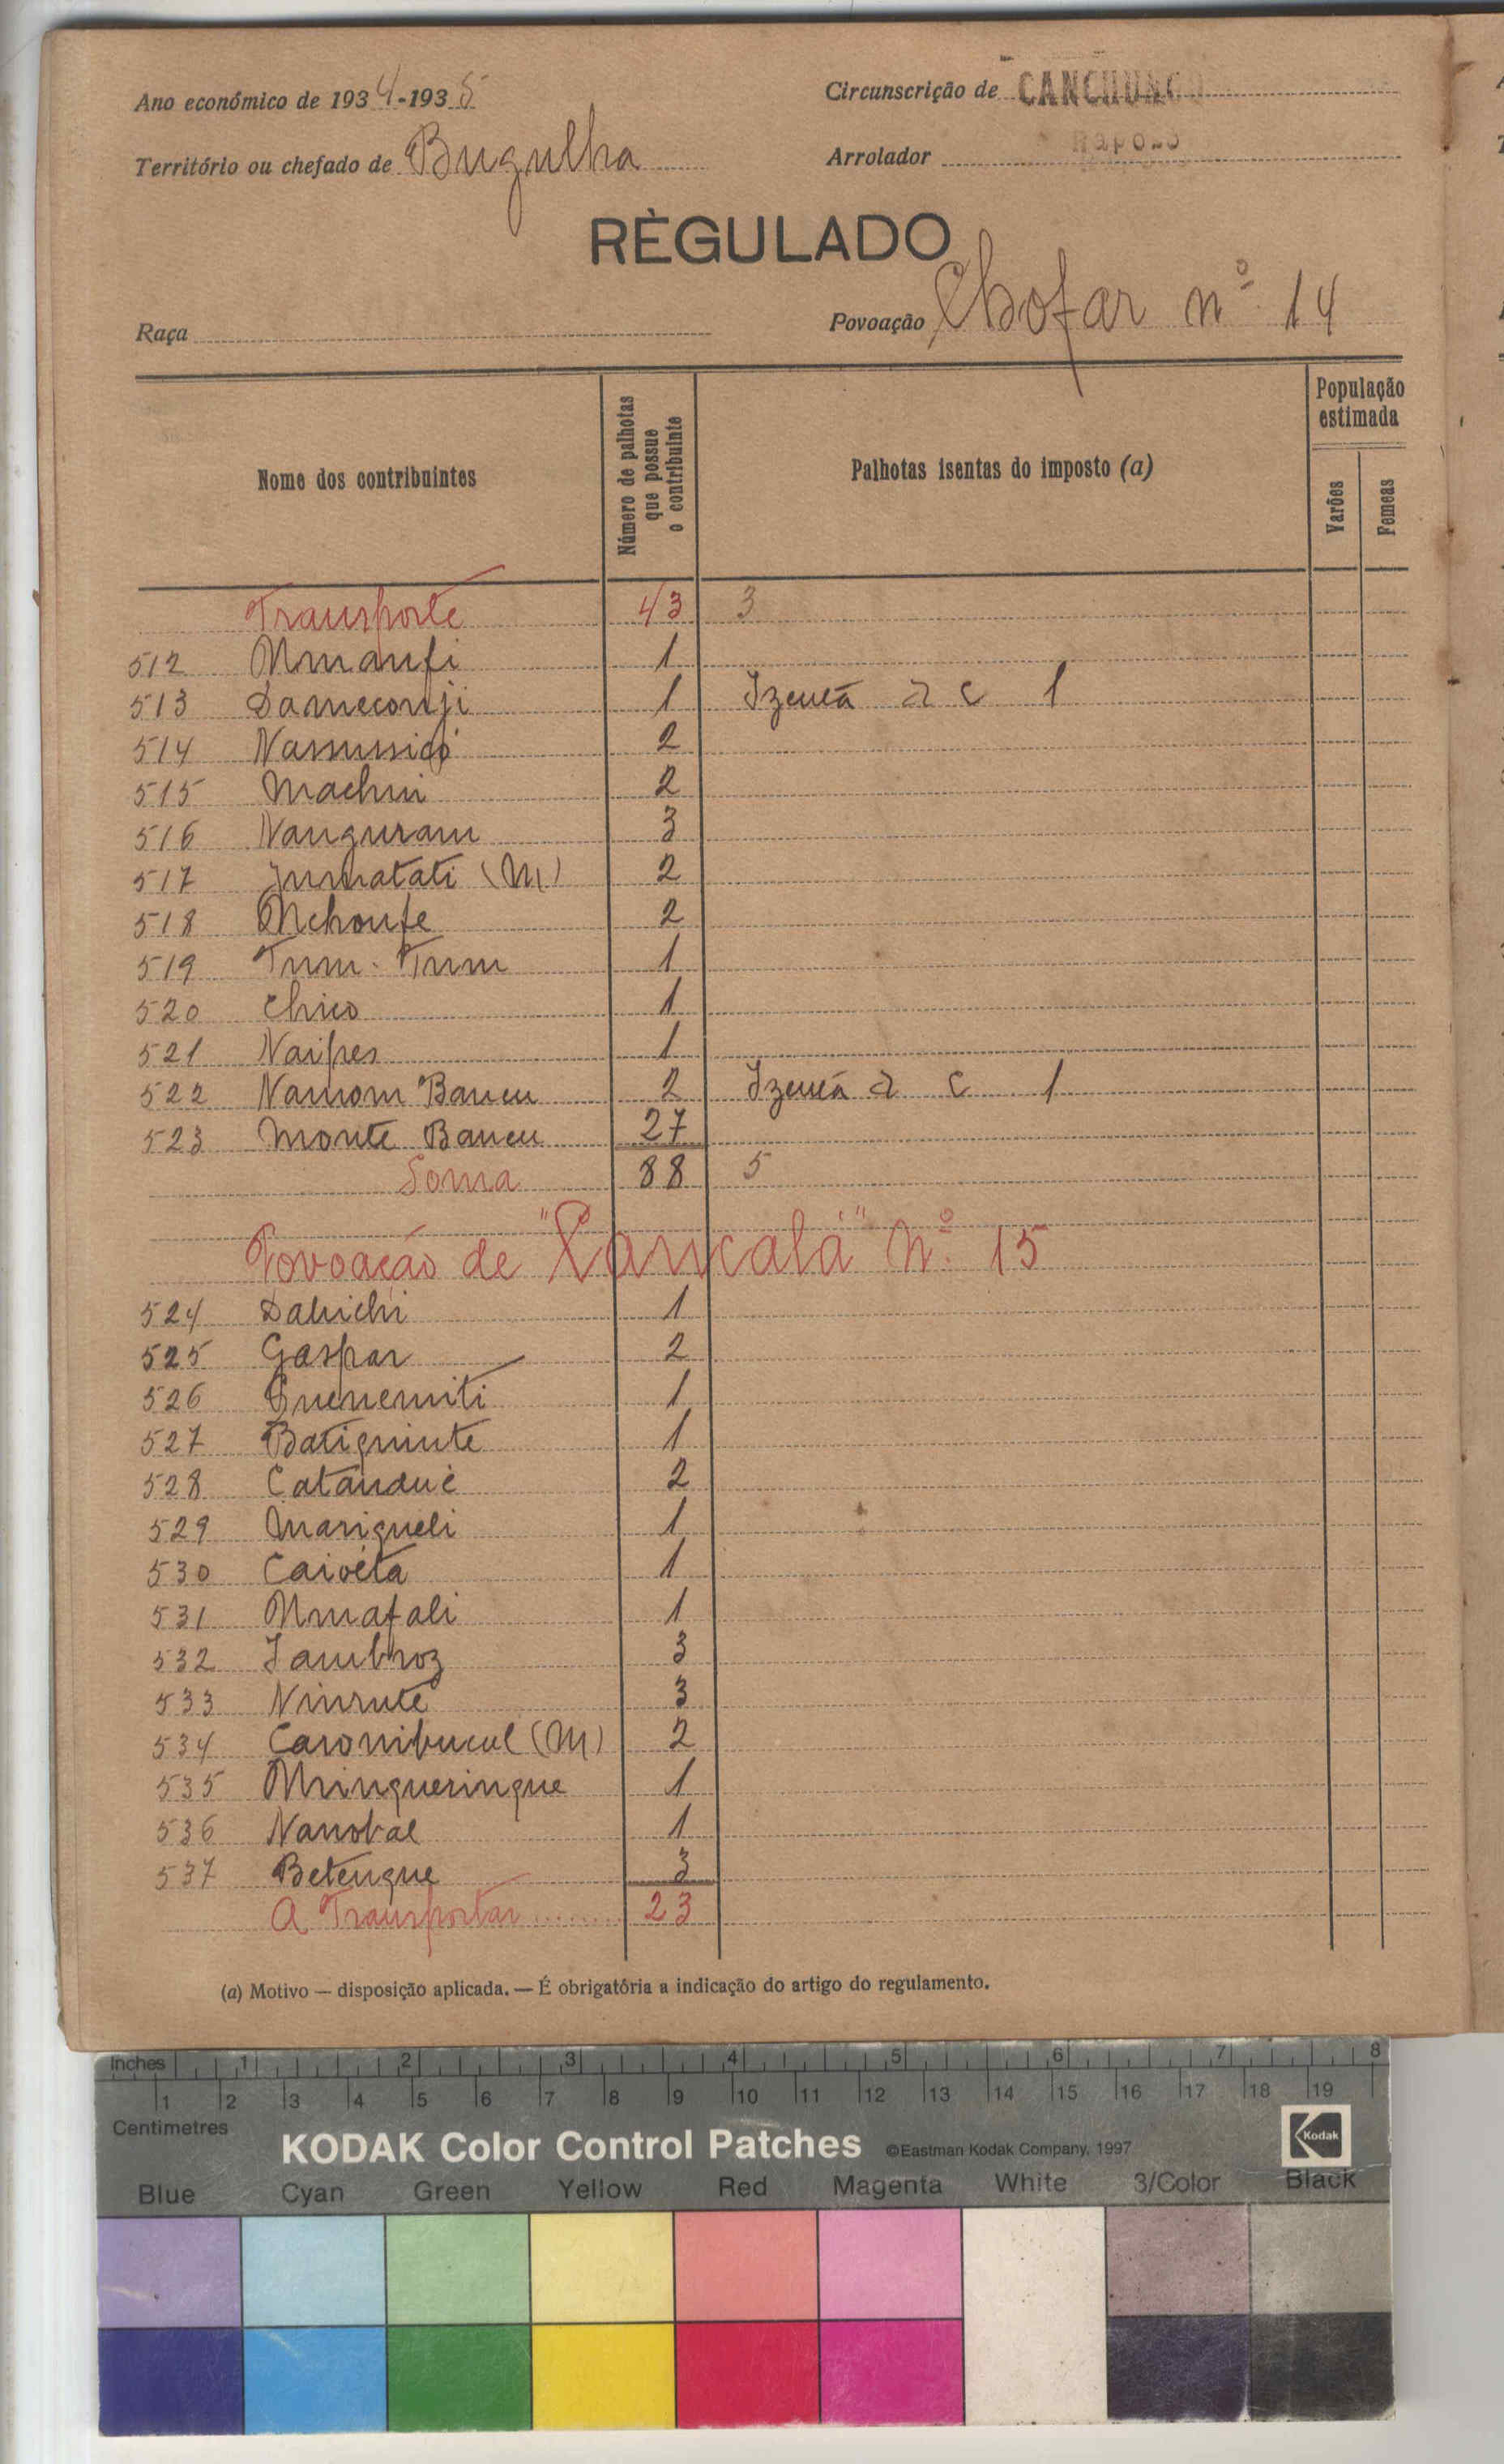 Ano económico de 1934-1935
Circunscrição de CANCHUNGO
Território ou chefado de Bugulha
Arrolador Raposo
RÈGULADO
Raça
Povoação Chofar nº 14
Nome dos contribuintes
Número de palhotas que possue o contribuinte
Palhotas isentas do imposto (a)
População estimada
Varões
Femeas
Transporte 43 3
512 Mmanfi 1
513 Dameconji 1 Izenta a c 1
514 2
515 Machin 2
516 Nanguram 3
517 Jumatati (M) 2
518 Mchonfe 2
519 Tum-Tum 1
520 Chico 1
521 Naipes 1
522 Namom Bancu 2 Izenta a c 1
523 Monte Bancu 27
Soma 88 5
Povoação de "Pancalá" Nº 15
524 Dabichi 1
525 Gaspar 2
526 1
527 Batiquinte 1
528 Catanduè 2
529 Marigueli 1
530 Caioéta 1
531 Mmafali 1
532 Jambroz 3
533 Ninrute 3
534 (M) 2
535 Mringueringue 1
536 Nanobal 1
537 Betengue 3
A Transportar ........ 23
(a) Motivo — disposição aplicada. — É obrigatória a indicação do artigo do regulamento.
Inches 1 2 3 4 5 6 7 8
1 2 3 4 5 6 7 8 9 10 11 12 13 14 15 16 17 18 19
Centimetres
KODAK Color Control Patches ©Eastman Kodak Company, 1997 Kodak
Blue Cyan Green Yellow Red Magenta White 3/Color Black